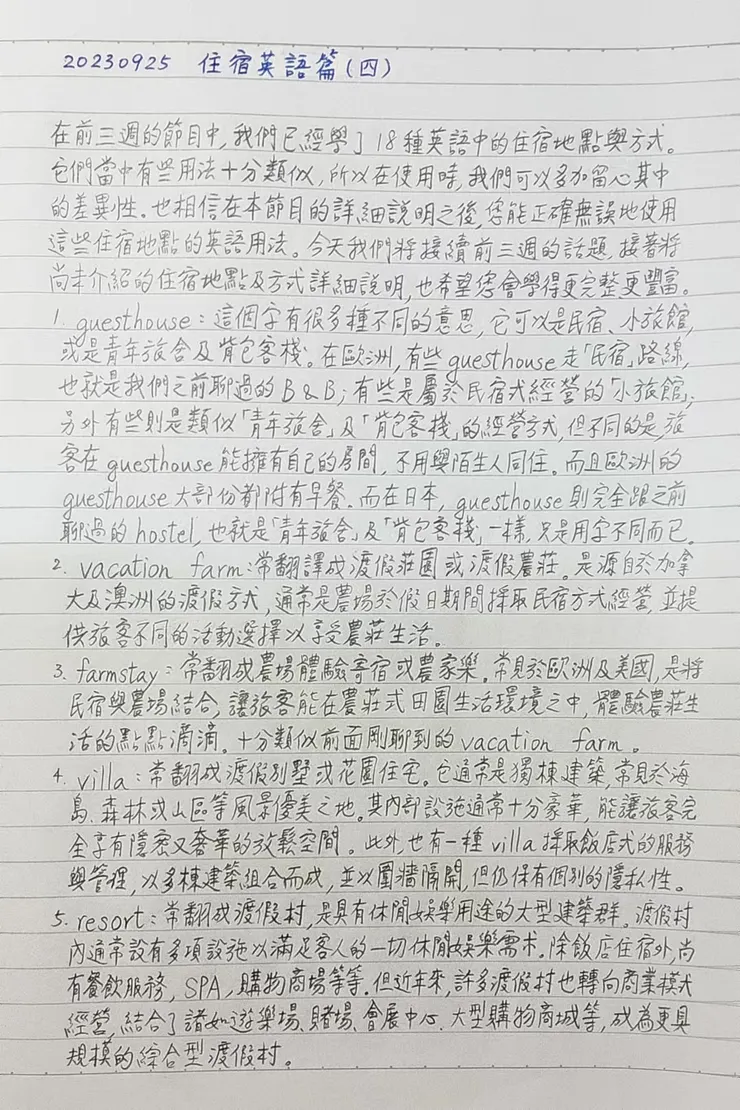 20230925 住宿英語篇(四)
在前三週的節目中,我們已經學了18種英語中的住宿地點與方式。
它們當中有些用法十分類似,所以在使用時,我們可以多加留心其中
的差異性。也相信在本節目的詳細說明之後,您能正確無誤地使用
這些住宿地點的英語用法。今天我們將接續前三週的話題,接著將
尚未介紹的住宿地點及方式詳細說明,也希望您會學得更完整更豐富。
1. guesthouse:這個字有很多種不同的意思,它可以是民宿、小旅館,
或是青年旅舍及背包客棧。在歐洲,有些guesthouse走「民宿」路線,
也就是我們之前聊過的B&B;有些是屬於民宿式經營的「小旅館」;
另外有些則是類似「青年旅舍」及「背包客棧」的經營方式,但不同的是,旅
客在guesthouse能擁有自己的房間,不用與陌生人同住。而且歐洲的
guesthouse大部份都附有早餐。而在日本,guesthouse則完全跟之前
聊過的hostel,也就是「青年旅舍」及「背包客棧」一樣,只是用字不同而已。
2. vacation farm:常翻譯成渡假莊園或渡假農莊。是源自於加拿
大及澳洲的渡假方式,通常是農場於假日期間採取民宿方式經營,並提
供旅客不同的活動選擇以享受農莊生活。
3. farmstay:常翻成農場體驗寄宿或農家樂。常見於歐洲及美國,是將
民宿與農場結合,讓旅客能在農莊式田園生活環境之中,體驗農莊生
活的點點滴滴。十分類似前面剛聊到的vacation farm。
4. villa:常翻成渡假別墅或花園住宅。它通常是獨棟建築,常見於海
島、森林或山區等風景優美之地。其內部設施通常十分豪華,能讓旅客完
全享有隱密又奢華的放鬆空間。此外,也有一種villa採取飯店式的服務
與管理,以多棟建築組合而成,並以圍牆隔開,但仍保有個別的隱私性。
5. resort:常翻成渡假村,是具有休閒娛樂用途的大型建築群。渡假村
內通常設有多項設施以滿足客人的一切休閒娛樂需求。除飯店住宿外,尚
有餐飲服務,SPA,購物商場等等。但近年來,許多渡假村也轉向商業模式
經營,結合了諸如遊樂場、賭場、會展中心、大型購物商城等,成為更具
規模的綜合型渡假村。